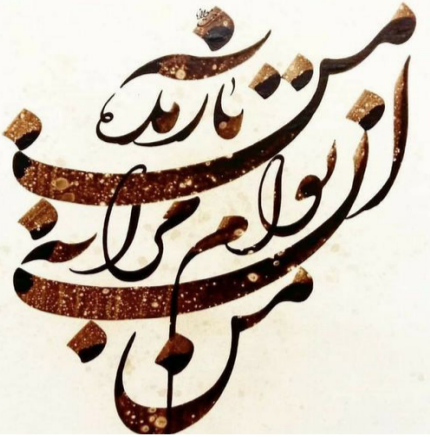 من آن
توام مرا به
من
باز مده